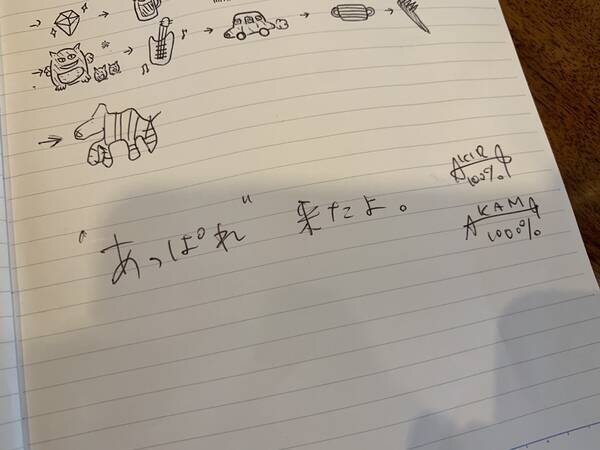 "あっぱれ" 来たよ。
AKIRA
100%
AKAMA
1000%